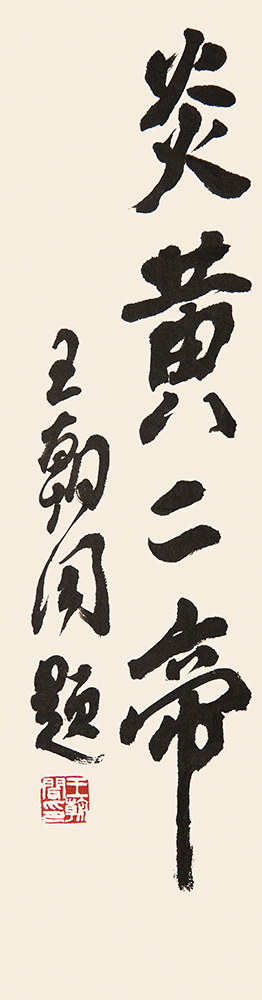 炎黄二帝
王朝闻题
王朝聞印